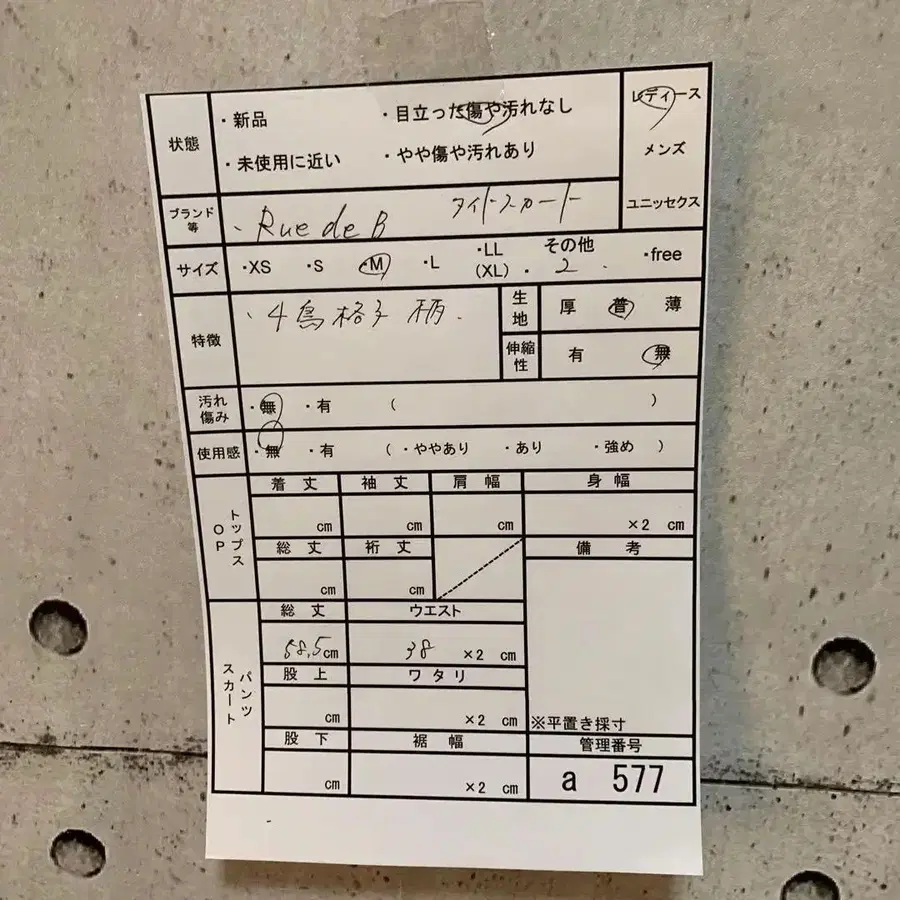 状態
・新品 ・目立った傷や汚れなし
・未使用に近い ・やや傷や汚れあり
レディース
メンズ
ユニッセクス
ブランド等
・Rue de B タイトスカート
サイズ
・XS ・S ・M ・L ・LL(XL) ・その他 2 ・free
特徴
・千鳥格子柄.
生地
厚 普 薄
伸縮性
有 無
汚れ傷み
・無 ・有 ( )
使用感
・無 ・有 (・ややあり ・あり ・強め )
トップス OP
着丈 袖丈 肩幅 身幅
cm cm cm ×2 cm
総丈 裄丈 備考
cm cm
パンツ スカート
総丈 ウエスト
58.5cm 38 ×2 cm
股上 ワタリ
cm ×2 cm
※平置き採寸
股下 裾幅 管理番号
cm ×2 cm a 577